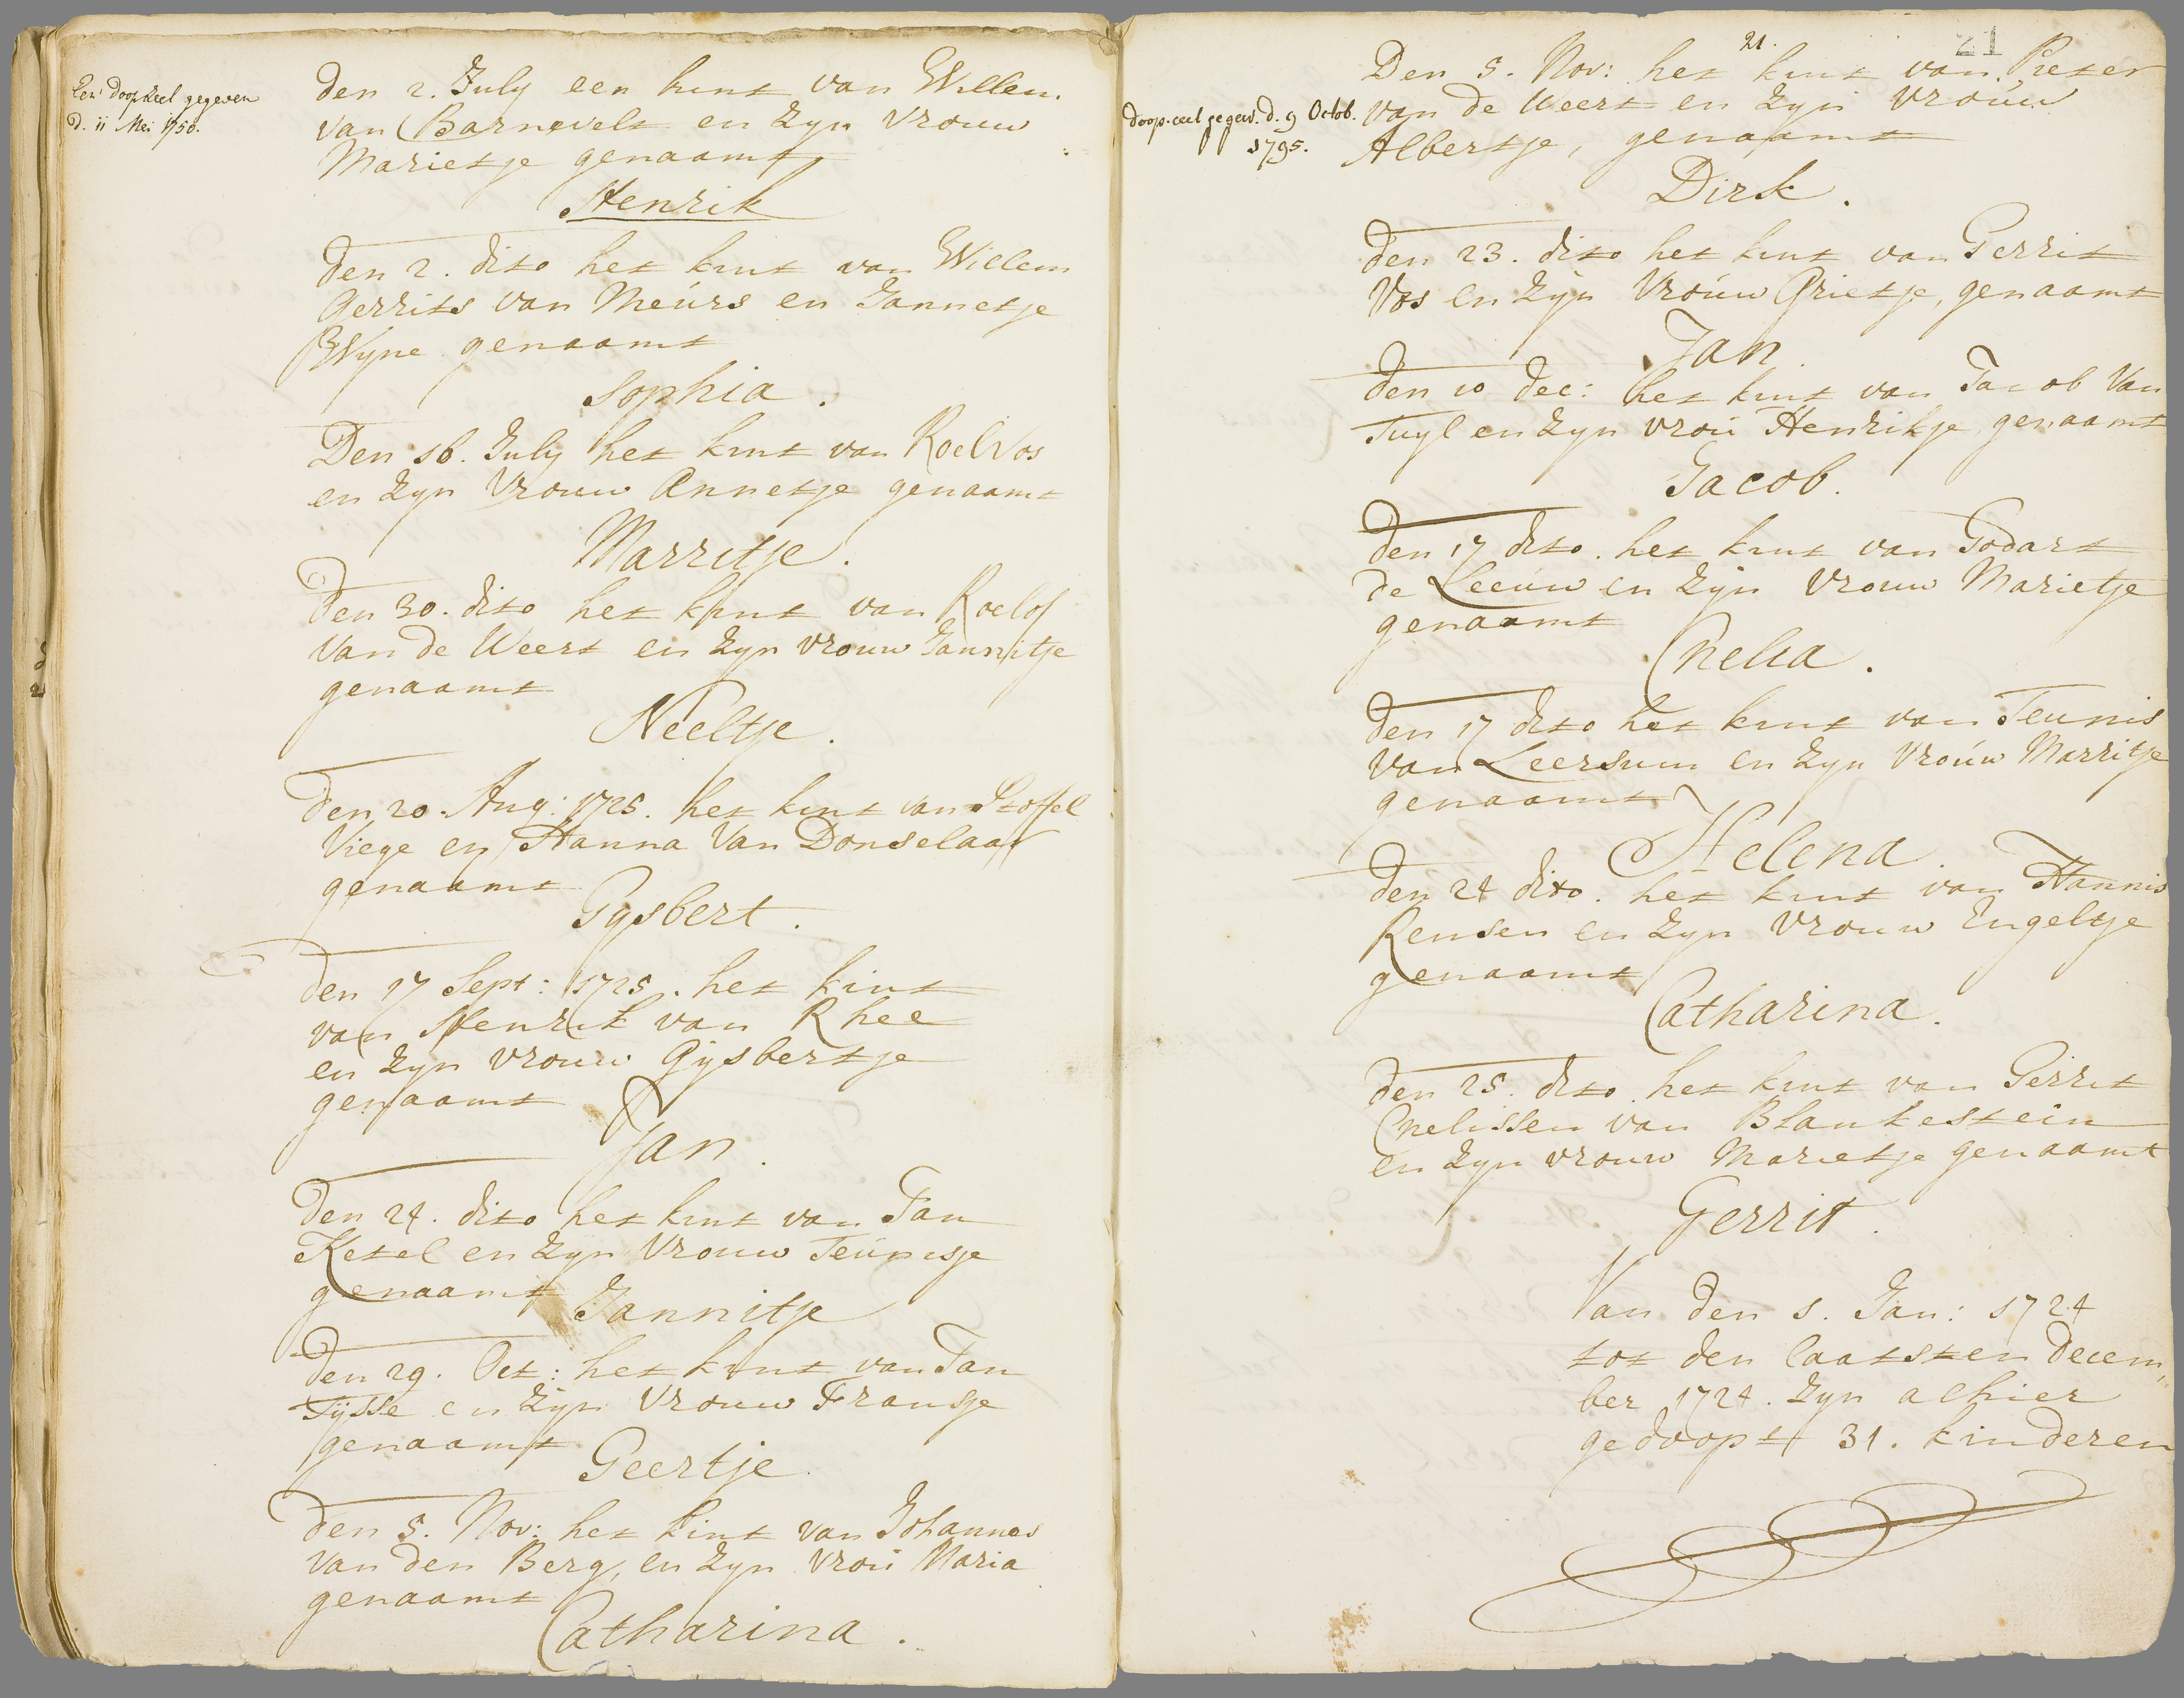 Een doopceel gegeven
d. 11 Mei 1750.
den 2. July een kint van Willem
van Barnevelt en zyn vrouw
Marietje genaamt
Henrik
den 2. dito het kint van Willem
Gerrits van Meúrs en Jannetje
Wyne genaamt
Sophia.
Den 16. July het kint van Roel Vos
en zyn vrouw Annetje genaamt
Marritje.
Den 30. dito het kint van Roelof
van de Weert en zyn vrouw Jannitje
genaamt
Neeltje.
Den 20. Aug: 1725. het kint van Stoffel
Viege en Hanna van Donselaar
genaamt
Gysbert.
Den 17 Sept: 1725. het kint
van Henrik van Rhee
en zyn vrouw Gysbertje
genaamt
Jan.
Den 24. dito het kint van Jan
Ketel en zyn vrouw Teúnisje
genaamt
Jannitje
Den 29. Oct: het kint van Jan
Tysse en zyn vrouw Fransje
genaamt
Geertje.
Den 5. Nov: het kint van Johannes
van den Berg, en zyn vroú Maria
genaamt
Catharina.
21.
21
Den 5. Nov: het kint van Pieter
doop-ceel gegev. d. 9 Octob.
1795.
van de Weert en zyn vroúw
Albertje, genaamt
Dirk.
Den 23. dito het kint van Gerrit
Vos en zyn vroúw Grietje, genaamt
Jan.
Den 10 dec: het kint van Jacob van
Tuyl en zyn vroú Henrikje genaamt
Jacob.
Den 17 dito. het kint van Godart
de Leeúw en zyn vrouw Marietje
genaamt
Cnelia.
Den 17 dito het kint van Teunis
van Leersum en zyn vroúw Marritje
genaamt
Helena.
Den 24 dito. het kint van Hannis
Rensen en zyn vrouw Engeltje
genaamt
Catharina.
Den 25. dito. het kint van Gerrit
Cnelissen van Blankestein
en zyn vrouw Marietje genaamt
Gerrit.
Van den 1. Jan: 1724
tot den laatsten Decem„
ber 1724. zyn alhier
gedoopt 31. kinderen